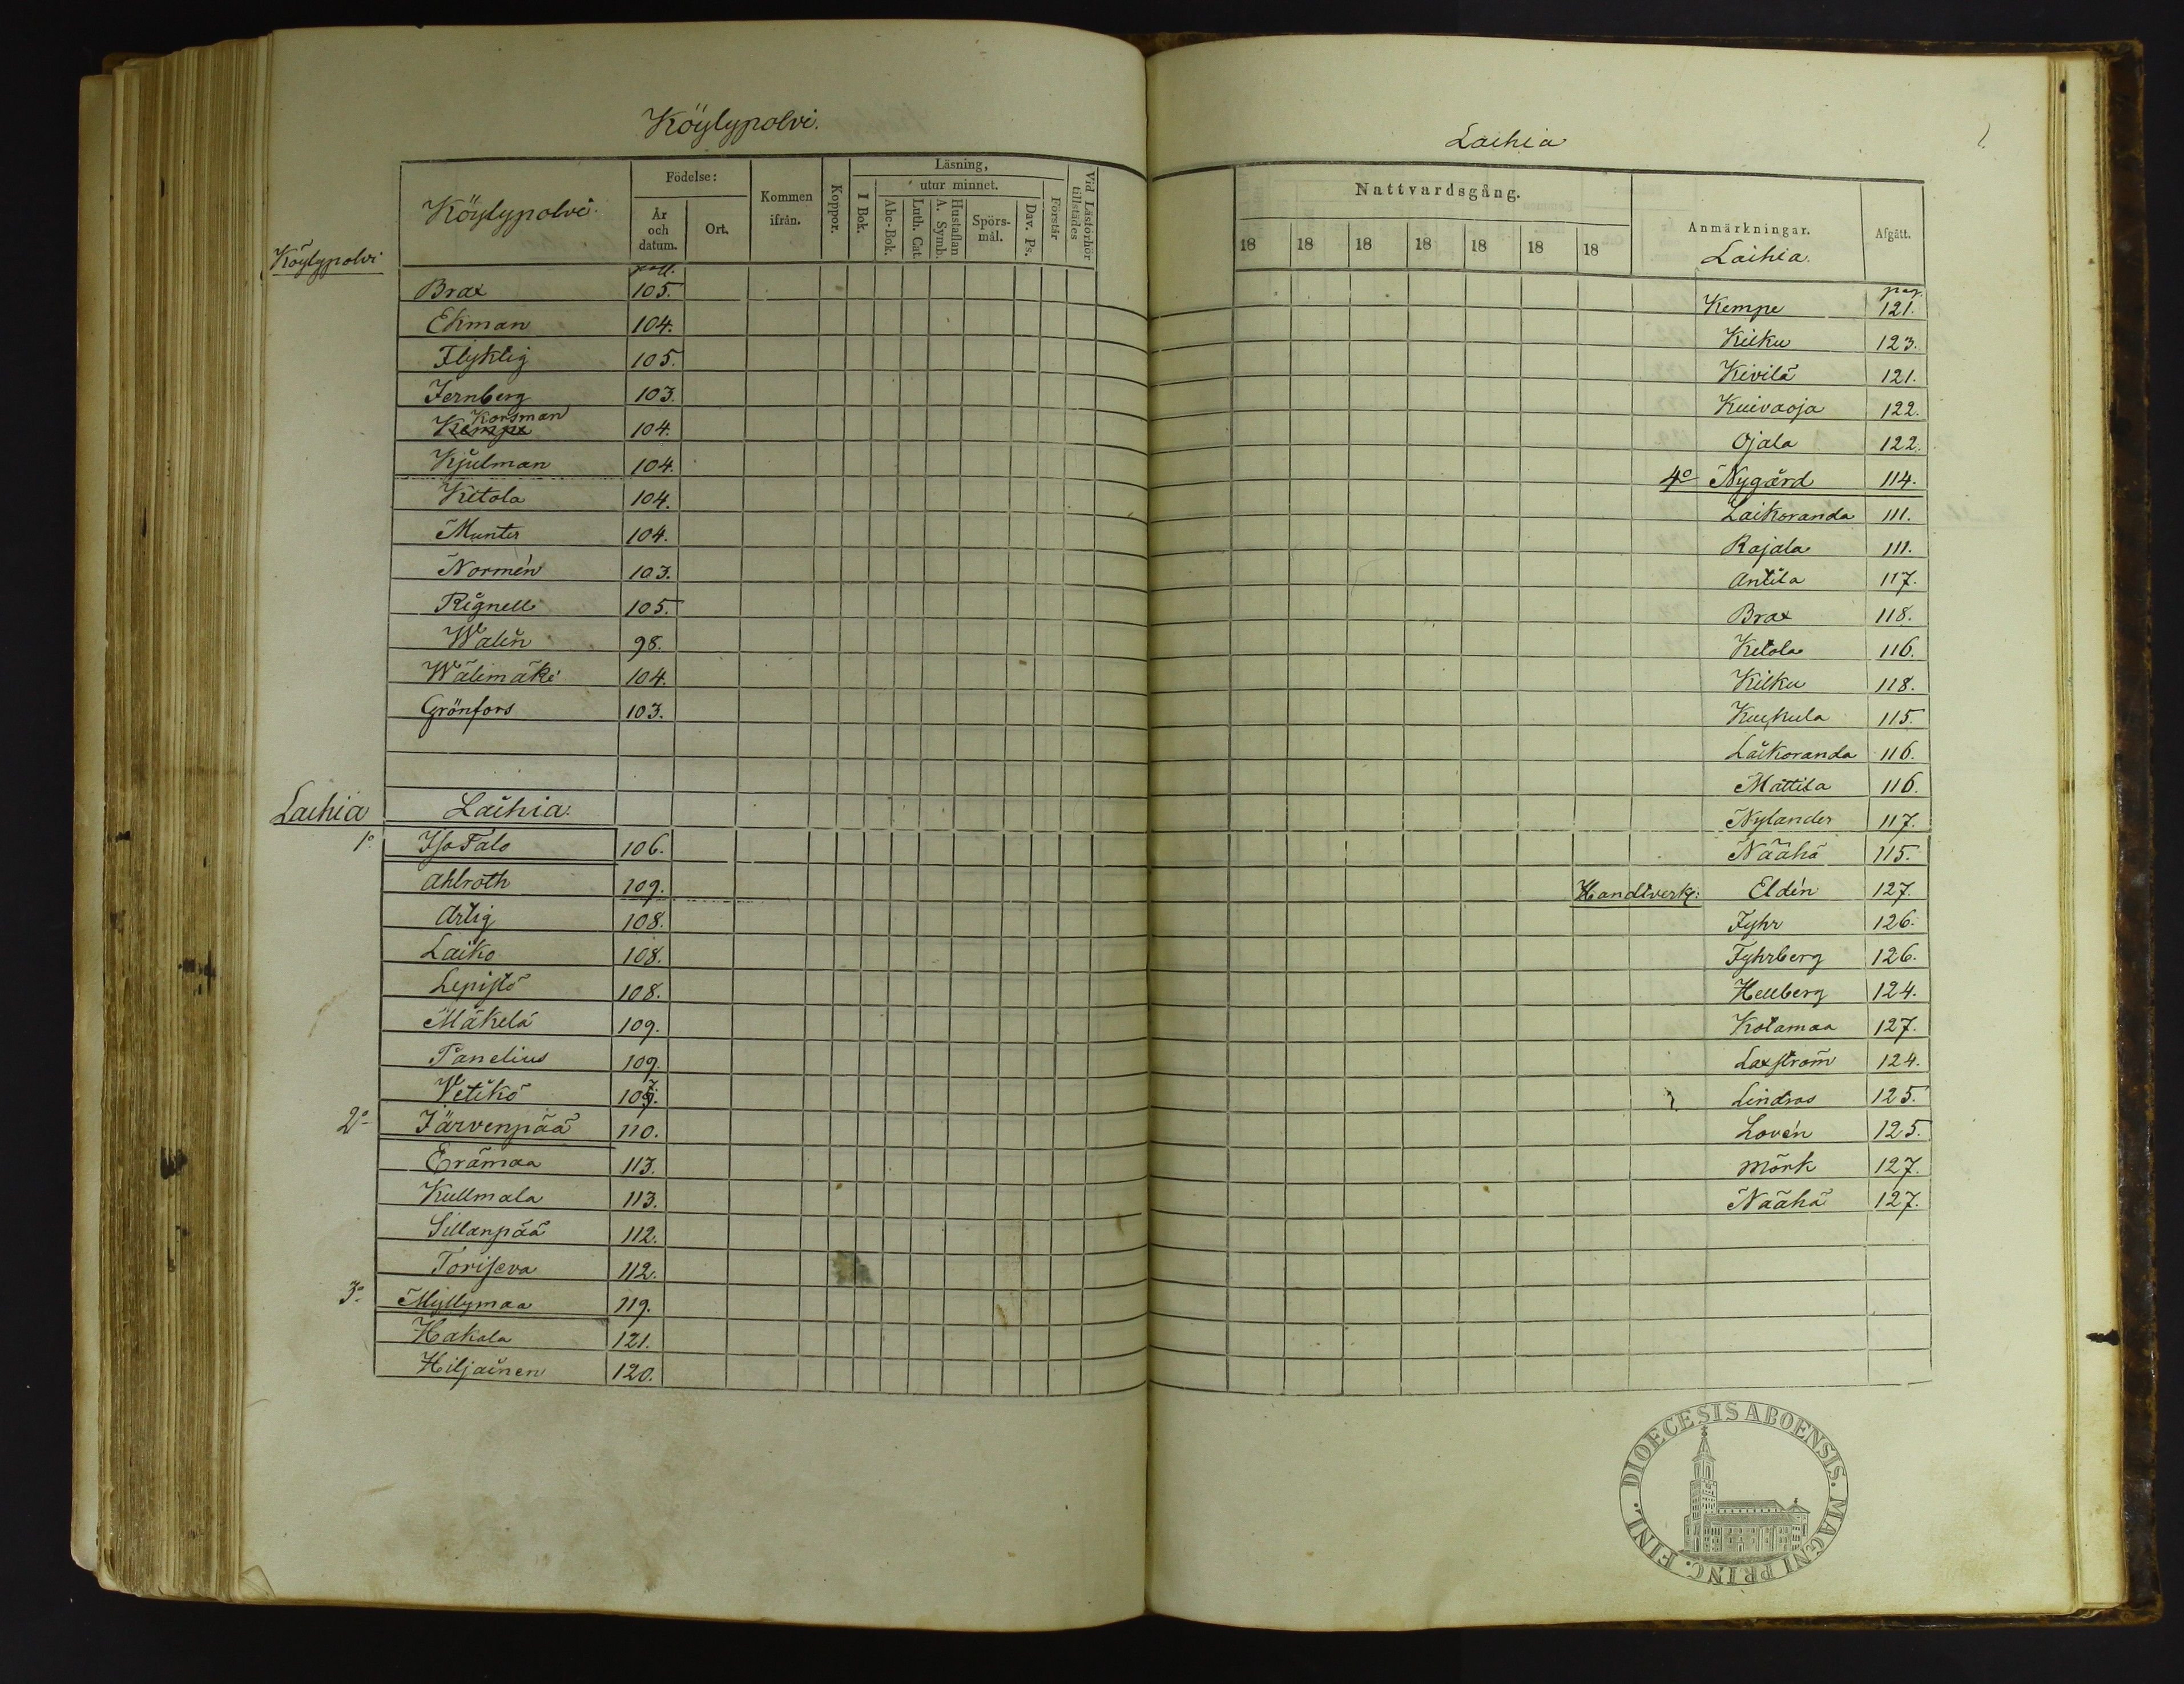 Köylypolvi.
Köylypolvi.
Födelse:
År och datum.
Ort.
Kommen ifrån.
Koppor.
Läsning,
I Bok.
utur minnet.
Abc-Bok.
Luth. Cat
Hustaflan A. Symb.
Spörsmål.
Dav. Ps.
Förstår
Vid Läsförhör tillstädes
Köylypolvi
Brax 105.
Ekman 104.
Flyktig 105.
Jernberg 103.
Korsman
Kempe 104.
Kjulman 104.
Ketola 104.
Munter 104.
Normén 103.
Rignell 105.
Walin 98.
Wälimäki 104.
Grönfors 103.
Laihia Laihia.
1o IsoTalo 106.
Ahlroth 109.
Artig 108.
Laiko 108.
Lepistö 108.
Mäkelä 109.
Panelius 109.
Wetikö 107.
2o Järvenpää 110.
Erämaa 113.
Kullmala 113.
Sillanpää 112.
Toriseva 112.
3o Myllymaa 119.
Hakala 121.
Hiljainen 120.
Laihia
Nattvardsgång.
18 18 18 18 18 18 18
Anmärkningar.
Laihia.
Afgått.
pag.
Kempe 121.
Kilku 123.
Kivilä 121.
Kuivaoja 122.
Ojala 122.
4o Nygård 114.
Laikoranda 111.
Rajala 111.
Antila 117.
Brax 118.
Ketola 116.
Kilku 118.
Kuckula 115.
Laikoranda 116.
Mattila 116.
Nylander 117.
Näähä 115.
Handtverk: Eldén 127.
Fyhr 126.
Fyhrberg 126.
Hellberg 124.
Kotamaa 127.
Laxström 124.
Lindroos 125.
Lovén 125.
Mörk 127.
Näähä 127.
DIOECESIS ABOENSIS. MAGNI PRINC. FINL.